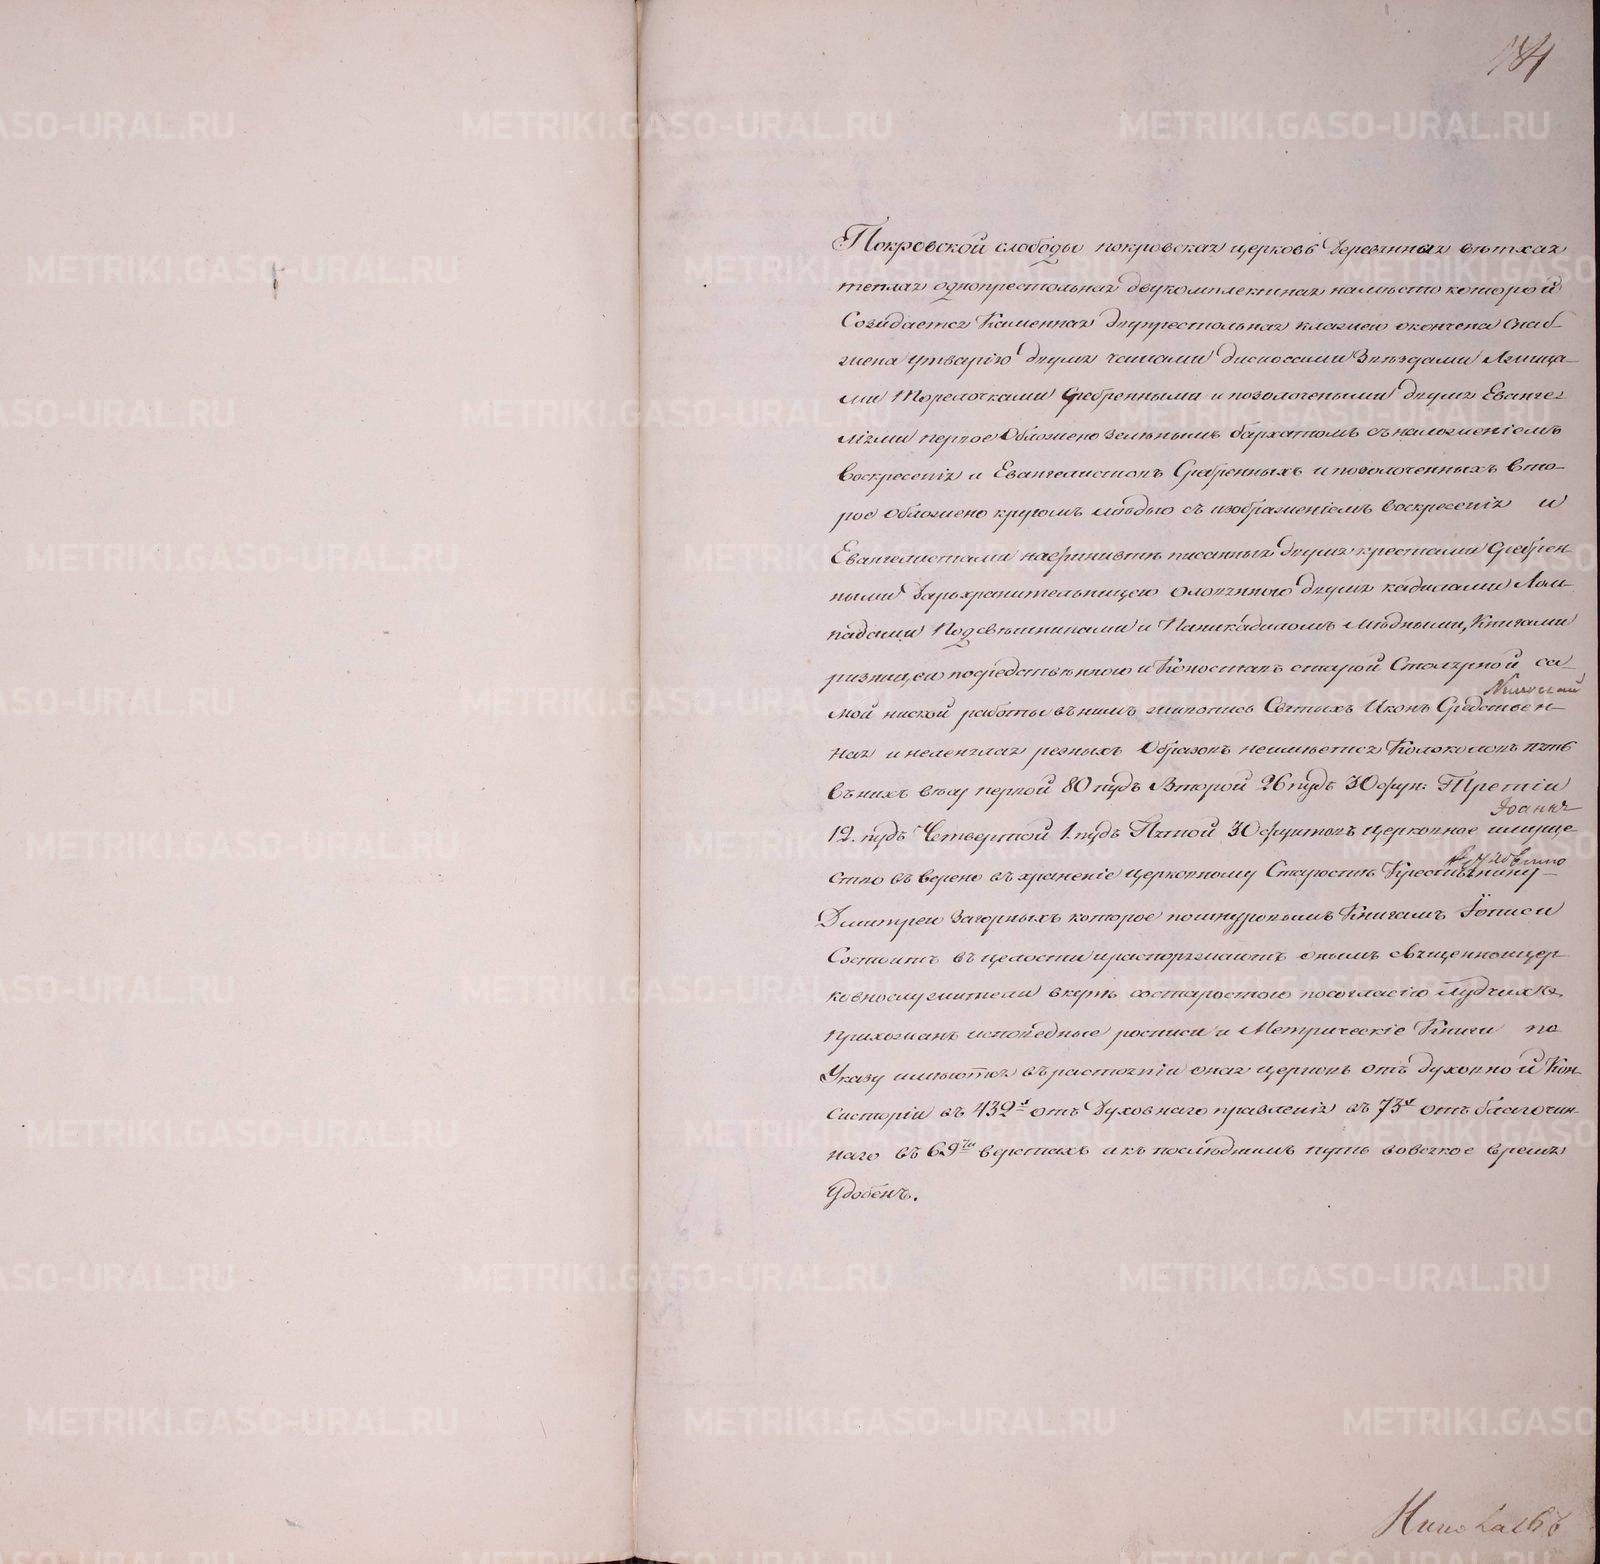 184
Покровской слободы покровская церковь Деревянная ветхая
теплая однопрестольная двукомплектная наместо которой
Созидается Каменная двупрестольная кладкою окончена Снаб-
жена утварію двумя чашами дискосами Звѣздами Лжица-
ми Торелочками Сребренными и позолочеными двумя Евангел
ліями первое Обложено зелѣнымъ бархатомъ съ наложеніемъ
Воскресенія и Евангелистовъ Сребренныхъ и позолоченныхъ Вто-
рое Обложено кругомъ мѣдью съ изображеніемъ воскресенія и
Евангелистами нафинивтѣ писанныя двумя крестами Сребрен-
ными Дарохранительницею Оловянною двумя кадилами Лом-
падами Подсвѣшниками и Паникадиломъ мѣдными, Книгами
ризницею посредственною и Коностасъ старой Столярной са-
мой ниской работы въ немъ живопись Святыхъ Иконъ Средствен-
Николай
ная и неленая резныхъ Образовъ неимѣется Колоколовъ пять
въ нихъ вѣсу первой 80 пудъ Второй 26 пудъ 30 фун: Третіи
12. пудъ Четвертой 1. пудъ Пятой 30 фунтовъ церковное имуще-
Іоаннъ
ство въверено въ храненіе церковному Старостѣ Крестьянину
Дмитрею Загорныхъ которое пошнуровымъ Книгамъ Іописи
Состоитъ въ целости ираспоряжаютъ онымъ священноцер-
ковнослужители вкупѣ состаростою посогласію лудчихъ
прихожанъ исповедные росписи и Метрическіе Книги по
Указу имѣются въ растояніи оная церковь отъ духовной Кон-
систоріи въ 432х отъ Духовнаго правленія въ 73х отъ благочин-
наго въ 69ти верстахъ икъ послѣднимъ путь вовсякое время
удобенъ.
METRIKI.GASO-URAL.RU